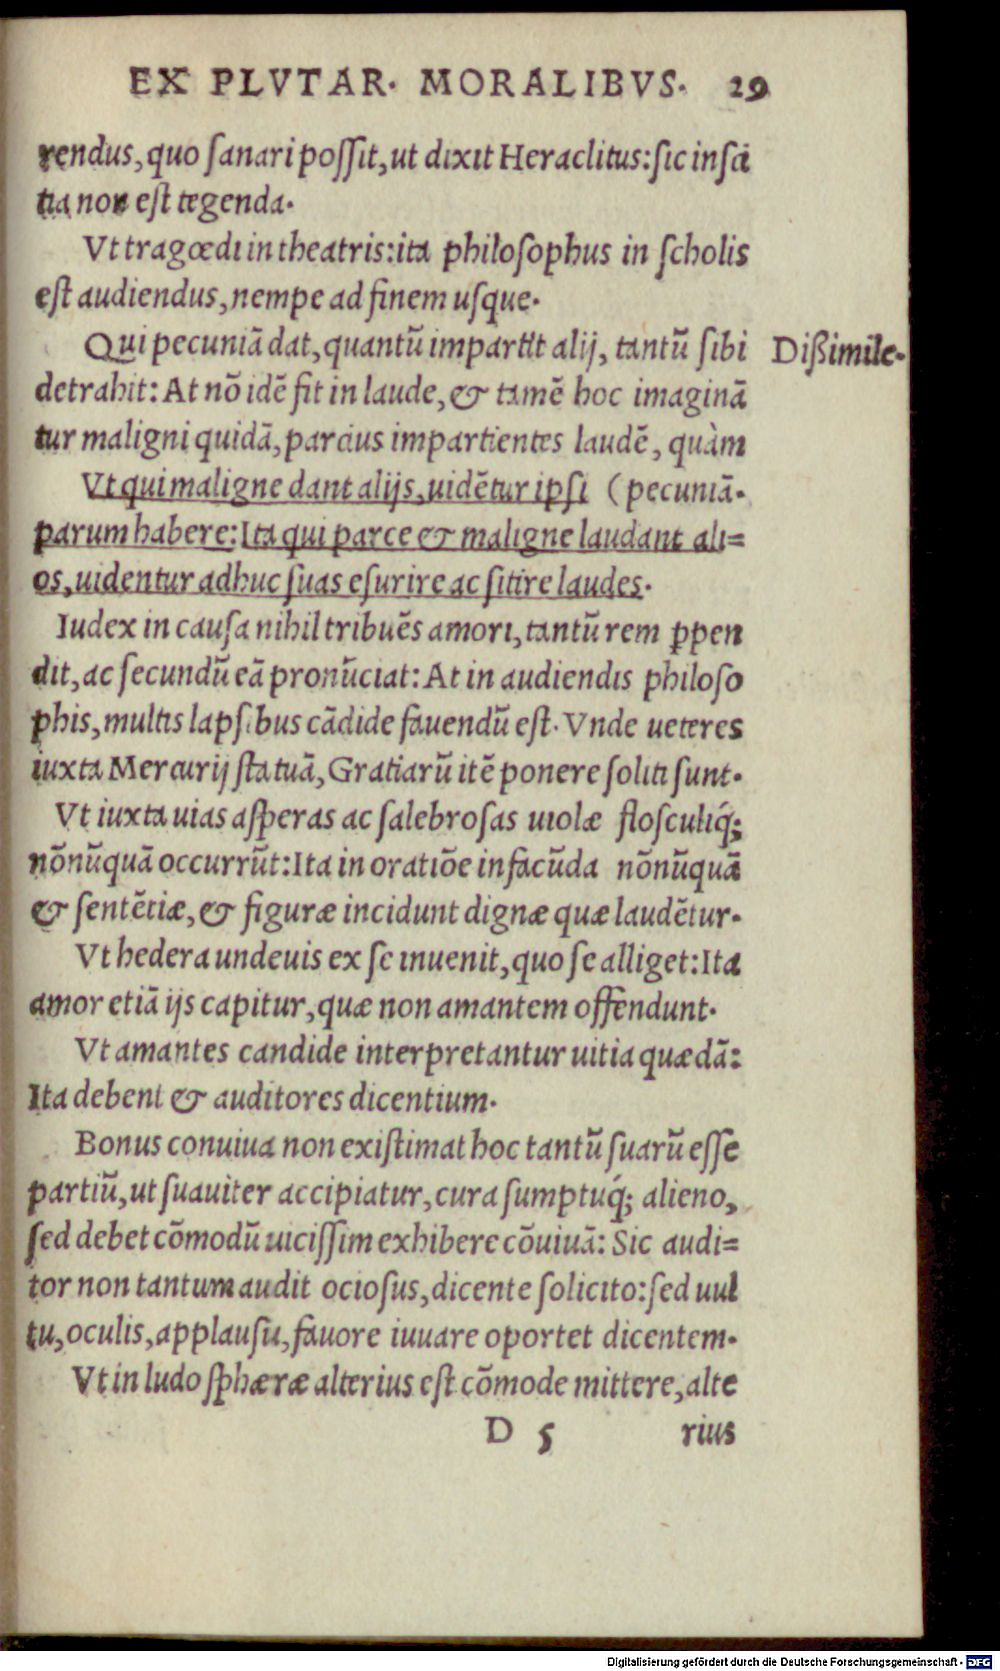 EX PLVTAR. MORALIBVS. 29
rendus, quo ſanari poſſit, ut dixit Heraclitus: ſic inſci
tia non eſt tegenda.
Vt tragœdi in theatris: ita philoſophus in ſcholis
eſt audiendus, nempe ad finem uſque.
Qui pecuniā dat, quantū impartit alij, tantū ſibi
Dißimile.
detrahit: At nō idē fit in laude, & tamē hoc imaginā
tur maligni quidā, parcius impartientes laudē, quàm
Vt qui maligne dant alijs, uidētur ipſi (pecuniā.
parum habere: Ita qui parce & maligne laudant ali=
os, uidentur adhuc ſuas eſurire ac ſitire laudes.
Iudex in cauſa nihil tribuēs amori, tantū rem ꝑpen
dit, ac ſecundū eā pronūciat: At in audiendis philoſo
phis, multis lapſibus cādide fauendū eſt. Vnde ueteres
iuxta Mercurij ſtatuā, Gratiarū itē ponere ſoliti ſunt.
Vt iuxta uias aſperas ac ſalebroſas uiolæ floſculiq́;
nōnūquā occurrūt: Ita in oratiōe infacūda nōnūquā
& ſentētiæ, & figuræ incidunt dignæ quæ laudētur.
Vt hedera undeuis ex ſe inuenit, quo ſe alliget: Ita
amor etiā ijs capitur, quæ non amantem offendunt.
Vt amantes candide interpretantur uitia quædā:
Ita debent & auditores dicentium.
Bonus conuiua non exiſtimat hoc tantū ſuarū eſſe
partiū, ut ſuauiter accipiatur, cura ſumptuq́; alieno,
ſed debet cōmodū uiciſſim exhibere cōuiuā: Sic audi=
tor non tantum audit ocioſus, dicente ſolicito: ſed uul
tu, oculis, applauſu, fauore iuuare oportet dicentem.
Vt in ludo ſphæræ alterius eſt cōmode mittere, alte
D 5 rius
Digitalisierung gefördert durch die Deutsche Forschungsgemeinschaft - DFG